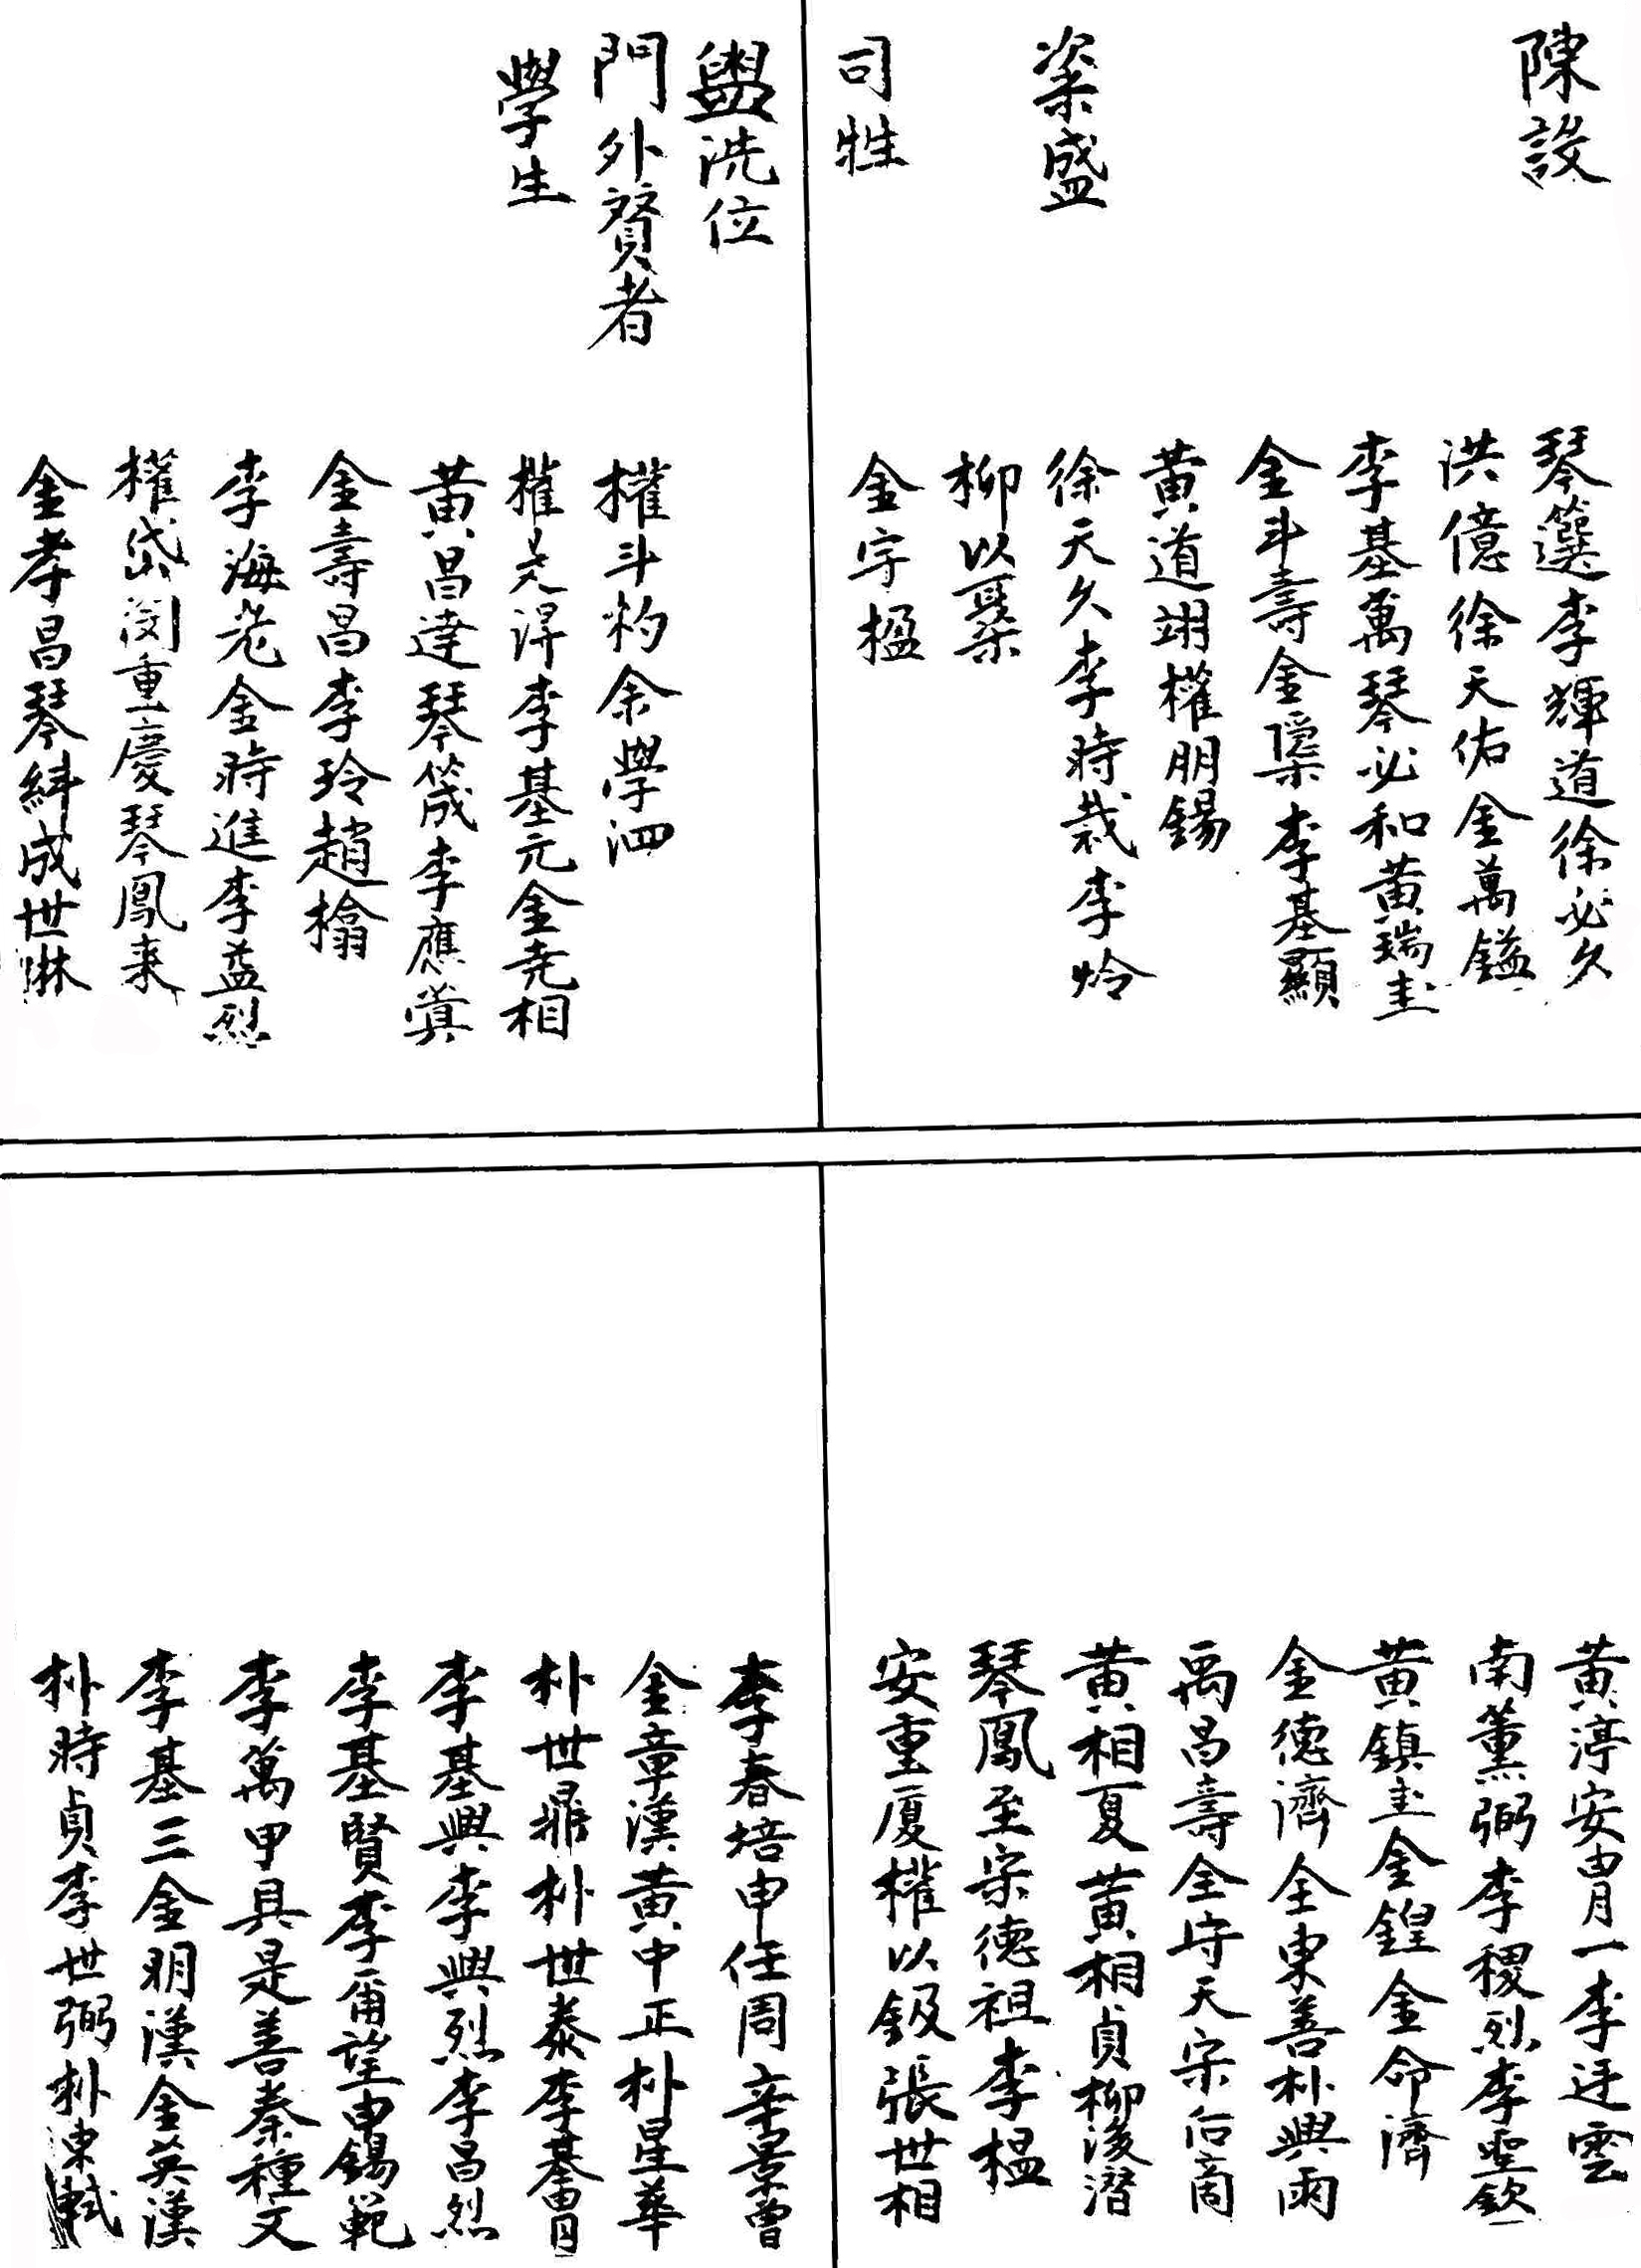 陳設
琴籩李輝道徐必久
洪億徐天佑金萬鎰
李基萬琴必和黃瑞圭
金斗壽金㮚李基顯
黃道翊權朋錫
粢盛
徐天久李時栽李炩
柳以
司牲
金字楹
盥洗位
門外贊者
權斗杓余學泗
學生
權 李基元金尭相
黃昌達琴筬李應
金壽昌李玲趙
李海 金時進李益烈
權岱閔重慶琴鳳来
金孝昌琴紏成世琳
黃渟安冑一李迋雲
南薰弼李稷烈李聖欽
黃鎮圭金鍠金命濟
金德濟全東善朴興雨
禹昌壽全守天宋 啇
黃相夏黃相貞柳浚潛
琴鳳至宋德祖李榅
安重厦權以鈒張世相
李春培申任周辛景曾
金章漢黃中正朴星華
朴世鼎朴世泰李基冑
李基興李興烈李昌烈
李基賢李 望申錫範
李萬甲具是善秦種文
李基三金明漢金英漢
朴時貞李世弼朴東軾